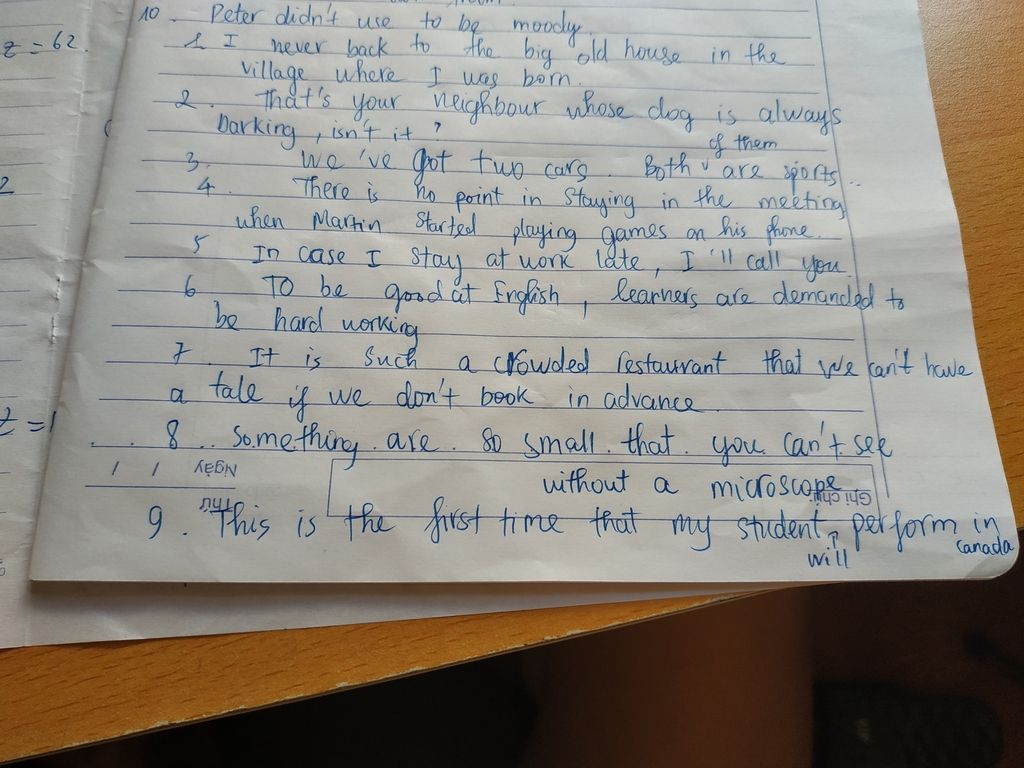 z = 62.
10. Peter didn't use to be moody.
1. I never back to the big old house in the
village where I was born.
2. That's your neighbour whose dog is always
barking, isn't it?
of them
3. We've got two cars. Both v are sports..
4. There is no point in staying in the meeting
when Martin started playing games on his phone.
5 In case I stay at work late, I'll call you.
6 To be good at English, learners are demanded to
be hard working
7. It is such a crowded restaurant that we can't have
a tale if we don't book in advance.
z = 1
8.. something are so small that you can't see
Ngày / /
without a microscope
Ghi chú:
Thứ
9. This is the first time that my student perform in
will
canada